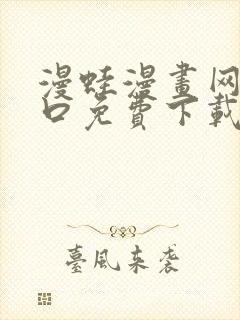 漫蛙漫畫网
口免費下載
臺風来袭